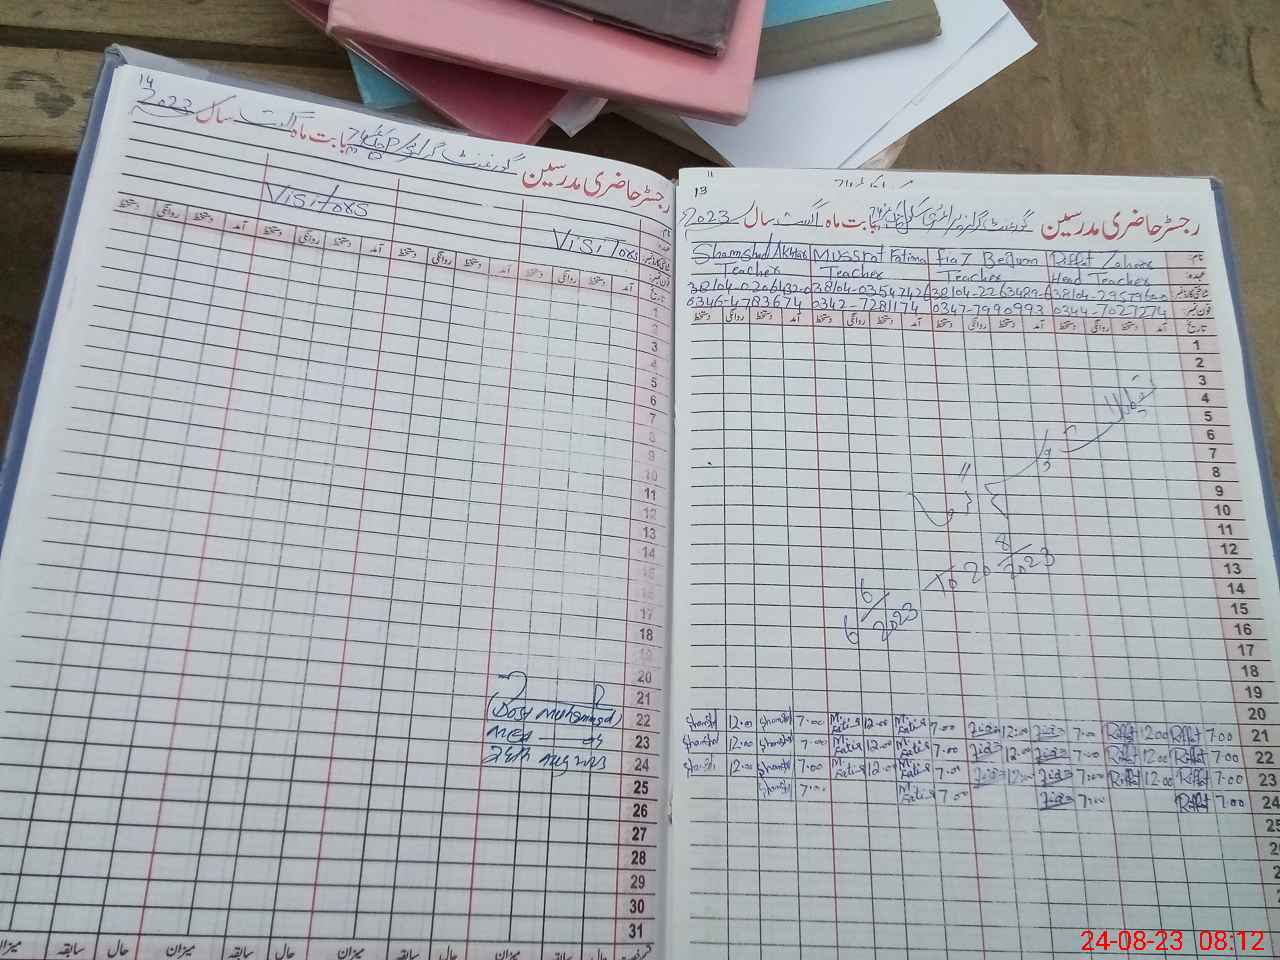 14
رجسٹر حاضری مدرسین گورنمنٹ گرلز بابت ماہ اگست سال 2023
Visitors
Visitors
نام
عہدہ
شناختی کارڈ نمبر
فون نمبر
تاریخ
آمد دستخط روانگی دستخط آمد دستخط روانگی دستخط آمد دستخط روانگی دستخط آمد دستخط روانگی دستخط
1
2
3
4
5
6
7
8
9
10
11
12
13
14
15
16
17
18
19
20
21
(Dost Muhammad) 22
MEA 23
24th Aug 2023 24
25
26
27
28
29
30
31
سابقہ حال میزان سابقہ حال میزان سابقہ حال
13
رجسٹر حاضری مدرسین گورنمنٹ گرلز پرائمری سکول بابت ماہ اگست سال 2023
نام Shamshad Akhtar Mussrat Fatima Fia7 Begum Riffat Zaheer
عہدہ Teacher Teacher Teacher Head Teacher
شناختی کارڈ نمبر 38104-0206432-0 38104-0354742 38104-2263489-6 38104-2957960
فون نمبر 0346-4783674 0342-7281174 0347-7990993 0344-7027274
تاریخ آمد دستخط روانگی دستخط آمد دستخط روانگی دستخط آمد دستخط روانگی دستخط آمد دستخط روانگی دستخط
1
2
3
4
5
6
7
8
9
10
11
12
13
14
15
16
17
18
19
20
تعطیلات
6/6/2023 To 20/8/2023
Shamshd 12.00 Shamshd 7.00 M.Fatima 12.00 M.Fatima 7.00 12:00 7.00 Riffat 12.00 Riffat 7.00 21
Shamshd 12.00 Shamshd 7.00 M.Fatima 12.00 M.Fatima 7.00 12:00 7.00 Riffat 12.00 Riffat 7.00 22
Shamshd 12.00 Shamshd 7.00 M.Fatima 12.00 M.Fatima 7.00 12:00 7.00 Riffat 12.00 Riffat 7.00 23
Shamshd 7.00 M.Fatima 7.00 7.00 Riffat 7.00 24
25
24-08-23 08:12